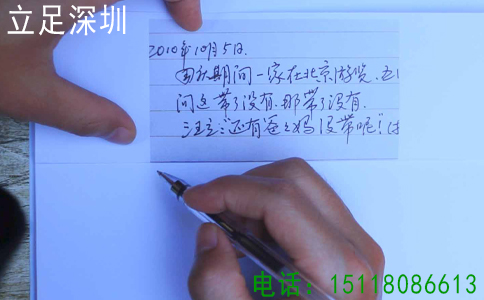 立足深圳
2010年10月5日.
国庆期间一家在北京游览.
问这带了没有.那带了没有.
汪立:"还有爸爸妈妈没带呢!"
电话:15118086613